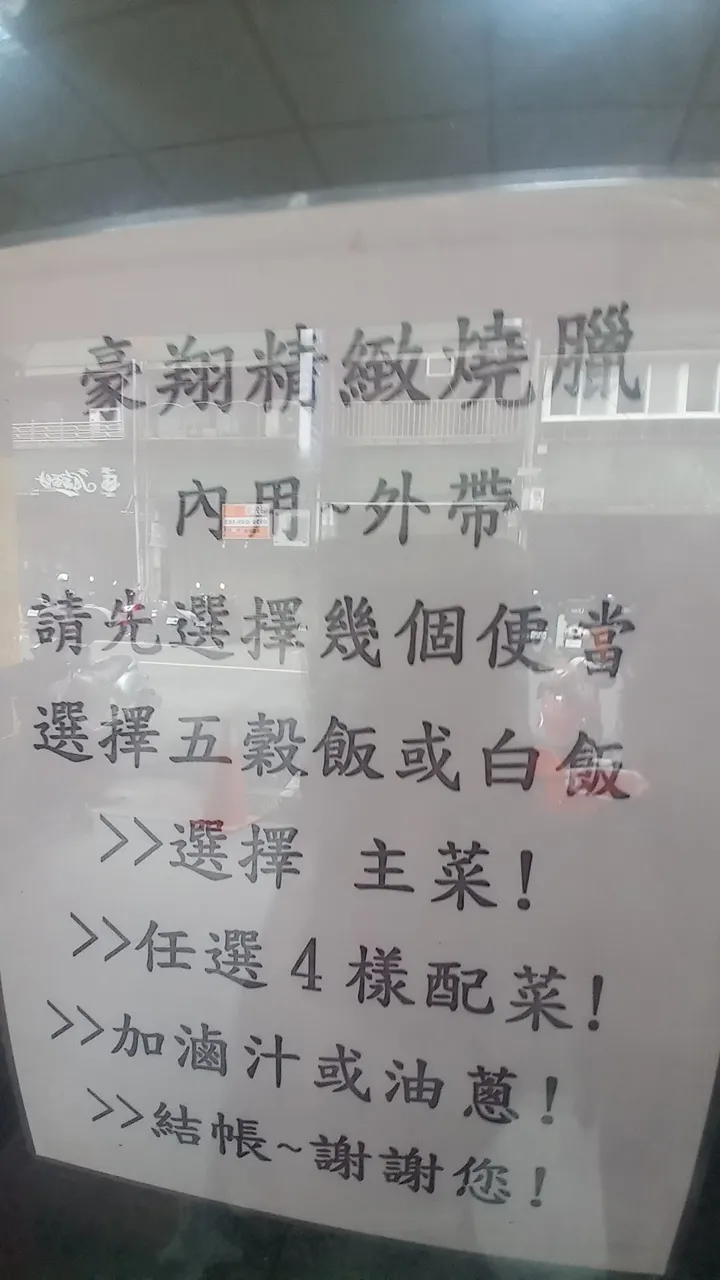 豪翔精緻燒臘
內用~外帶
請先選擇幾個便當
選擇五穀飯或白飯
>>選擇 主菜!
>>任選4樣配菜!
>>加滷汁或油蔥!
>>結帳~謝謝您!